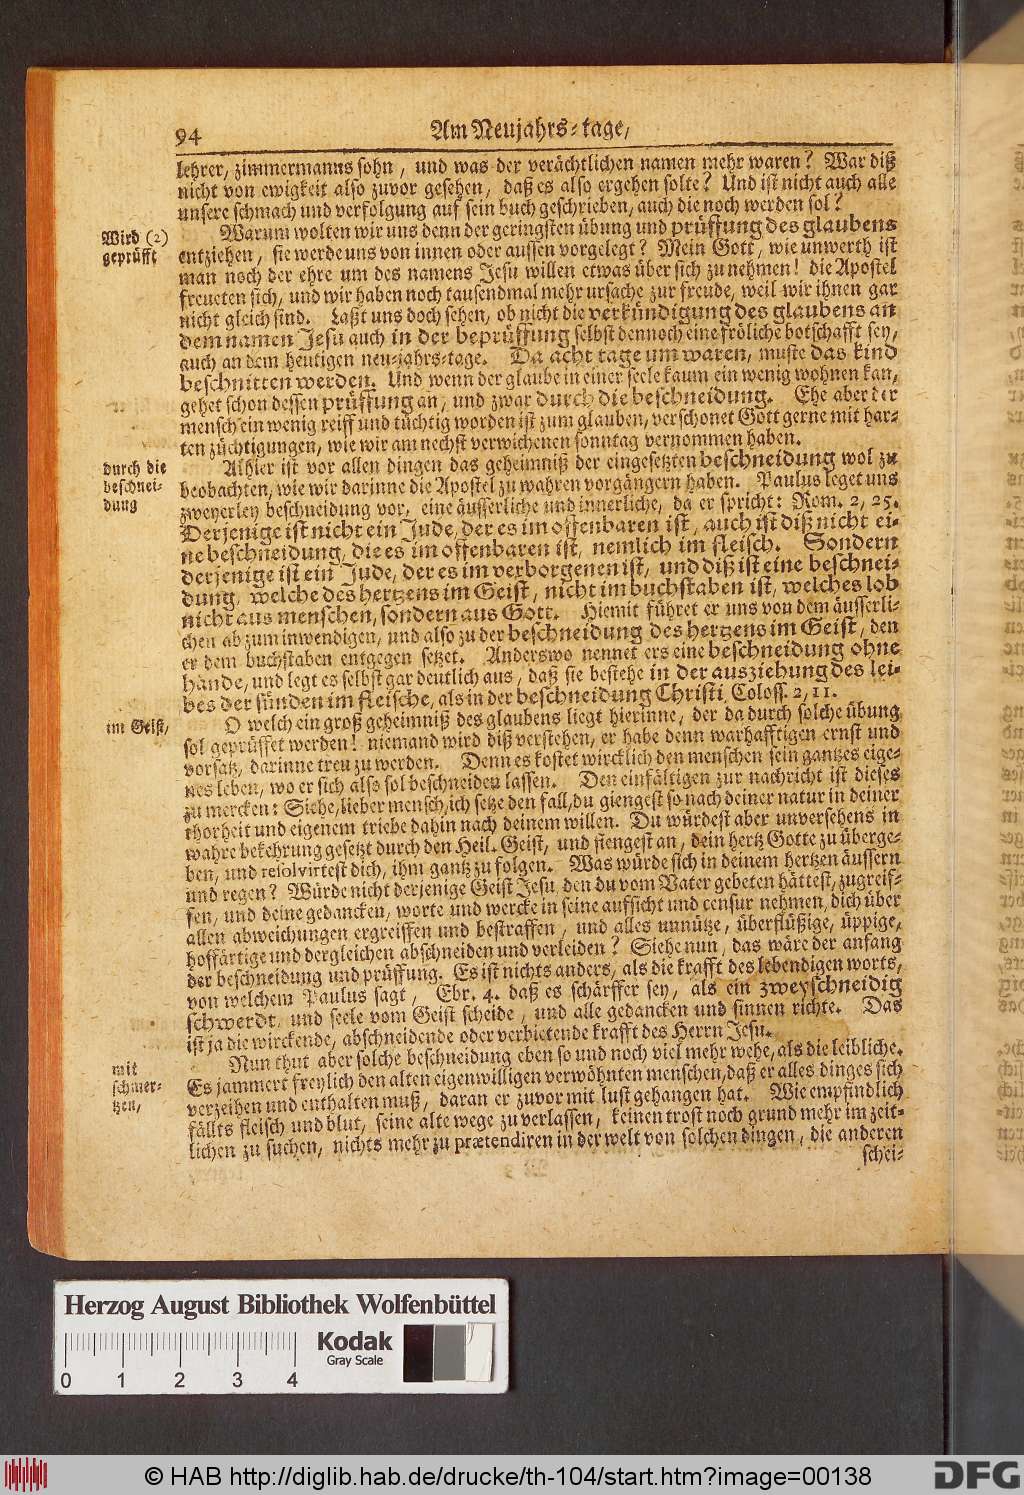 94
Am Neujahrs-tage,
lehrer, zimmermanns sohn, und was der verächtlichen namen mehr waren? War diß
nicht von ewigkeit also zuvor gesehen, daß es also ergehen solte? Und ist nicht auch alle
unsere schmach und verfolgung auf sein buch geschrieben, auch die noch werden sol?
Wird (2)
geprüfft
Warum wolten wir uns denn der geringsten übung und prüffung des glaubens
entziehen, sie werde uns von innen oder aussen vorgelegt? Mein Gott, wie unwerth ist
man noch der ehre um des namens Jesu willen etwas über sich zu nehmen! die Apostel
freueten sich, und wir haben noch tausendmal mehr ursache zur freude, weil wir ihnen gar
nicht gleich sind. Laßt uns doch sehen, ob nicht die verkündigung des glaubens an
dem namen Jesu auch in der beprüffung selbst dennoch eine fröliche botschafft sey,
auch an dem heutigen neu-jahrs-tage. Da acht tage um waren, muste das kind
beschnitten werden. Und wenn der glaube in einer seele kaum ein wenig wohnen kan,
gehet schon dessen prüffung an, und zwar durch die beschneidung. Ehe aber der
mensch ein wenig reiff und tüchtig worden ist zum glauben, verschonet Gott gerne mit har-
ten züchtigungen, wie wir am nechst verwichenen sonntag vernommen haben.
durch die
beschnei-
dung
Alhier ist vor allen dingen das geheimniß der eingesetzten beschneidung wol zu
beobachten, wie wir darinne die Apostel zu wahren vorgängern haben. Paulus leget uns
zweyerley beschneidung vor, eine äusserliche und innerliche, da er spricht: Rom. 2, 25.
Derjenige ist nicht ein Jude, der es im offenbaren ist, auch ist diß nicht ei-
ne beschneidung, die es im offenbaren ist, nemlich im fleisch. Sondern
derjenige ist ein Jude, der es im verborgenen ist, und diß ist eine beschnei-
dung, welche des hertzens im Geist, nicht im buchstaben ist, welches lob
nicht aus menschen, sondern aus Gott. Hiemit führet er uns von dem äusserli-
chen ab zum inwendigen, und also zu der beschneidung des hertzens im Geist, den
er dem buchstaben entgegen setzet. Anderswo nennet ers eine beschneidung ohne
hände, und legt es selbst gar deutlich aus, daß sie bestehe in der ausziehung des lei-
bes der sünden im fleische, als in der beschneidung Christi, Coloss. 2, 11.
im Geist,
O welch ein groß geheimniß des glaubens liegt hierinne, der da durch solche übung
sol geprüffet werden! niemand wird diß verstehen, er habe denn warhafftigen ernst und
vorsatz, darinne treu zu werden. Denn es kostet wircklich den menschen sein gantzes eige-
nes leben, wo er sich also sol beschneiden lassen. Den einfältigen zur nachricht ist dieses
zu mercken: Siehe, lieber mensch, ich setze den fall, du giengest so nach deiner natur in deiner
thorheit und eigenem triebe dahin nach deinem willen. Du würdest aber unversehens in
wahre bekehrung gesetzt durch den Heil. Geist, und fiengest an, dein hertz Gotte zu überge-
ben, und resolvirtest dich, ihm gantz zu folgen. Was würde sich in deinem hertzen äussern
und regen? Würde nicht derjenige Geist Jesu, den du vom Vater gebeten hättest, zugreif-
fen, und deine gedancken, worte und wercke in seine aufsicht und censur nehmen, dich über
allen abweichungen ergreiffen und bestraffen, und alles unnütze, überflüßige, üppige,
hoffärtige und dergleichen abschneiden und verleiden? Siehe nun, das wäre der anfang
der beschneidung und prüffung. Es ist nichts anders, als die krafft des lebendigen worts,
von welchem Paulus sagt, Ebr. 4. daß es schärffer sey, als ein zweyschneidig
schwerdt, und seele vom Geist scheide, und alle gedancken und sinnen richte. Das
ist ja die wirckende, abschneidende oder verbietende krafft des Herrn Jesu.
mit
schmer-
tzen,
Nun thut aber solche beschneidung eben so und noch viel mehr wehe, als die leibliche.
Es jammert freylich den alten eigenwilligen verwöhnten menschen, daß er alles dinges sich
verzeihen und enthalten muß, daran er zuvor mit lust gehangen hat. Wie empfindlich
fällts fleisch und blut, seine alte wege zu verlassen, keinen trost noch grund mehr im zeit-
lichen zu suchen, nichts mehr zu prætendiren in der welt von solchen dingen, die anderen
schei-
Herzog August Bibliothek Wolfenbüttel
Kodak
Gray Scale
0 1 2 3 4
© HAB http://diglib.hab.de/drucke/th-104/start.htm?image=00138
DFG